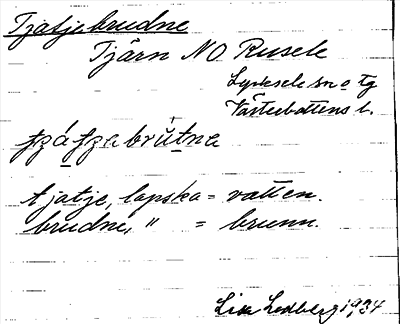 Tjatjebrudne
Tjärn NO Rusele
Lycksele sn o tg
Västerbottens l.
tjatje, lapska = vatten.
brudne, " = brunn.
Lisa Lidberg 1934